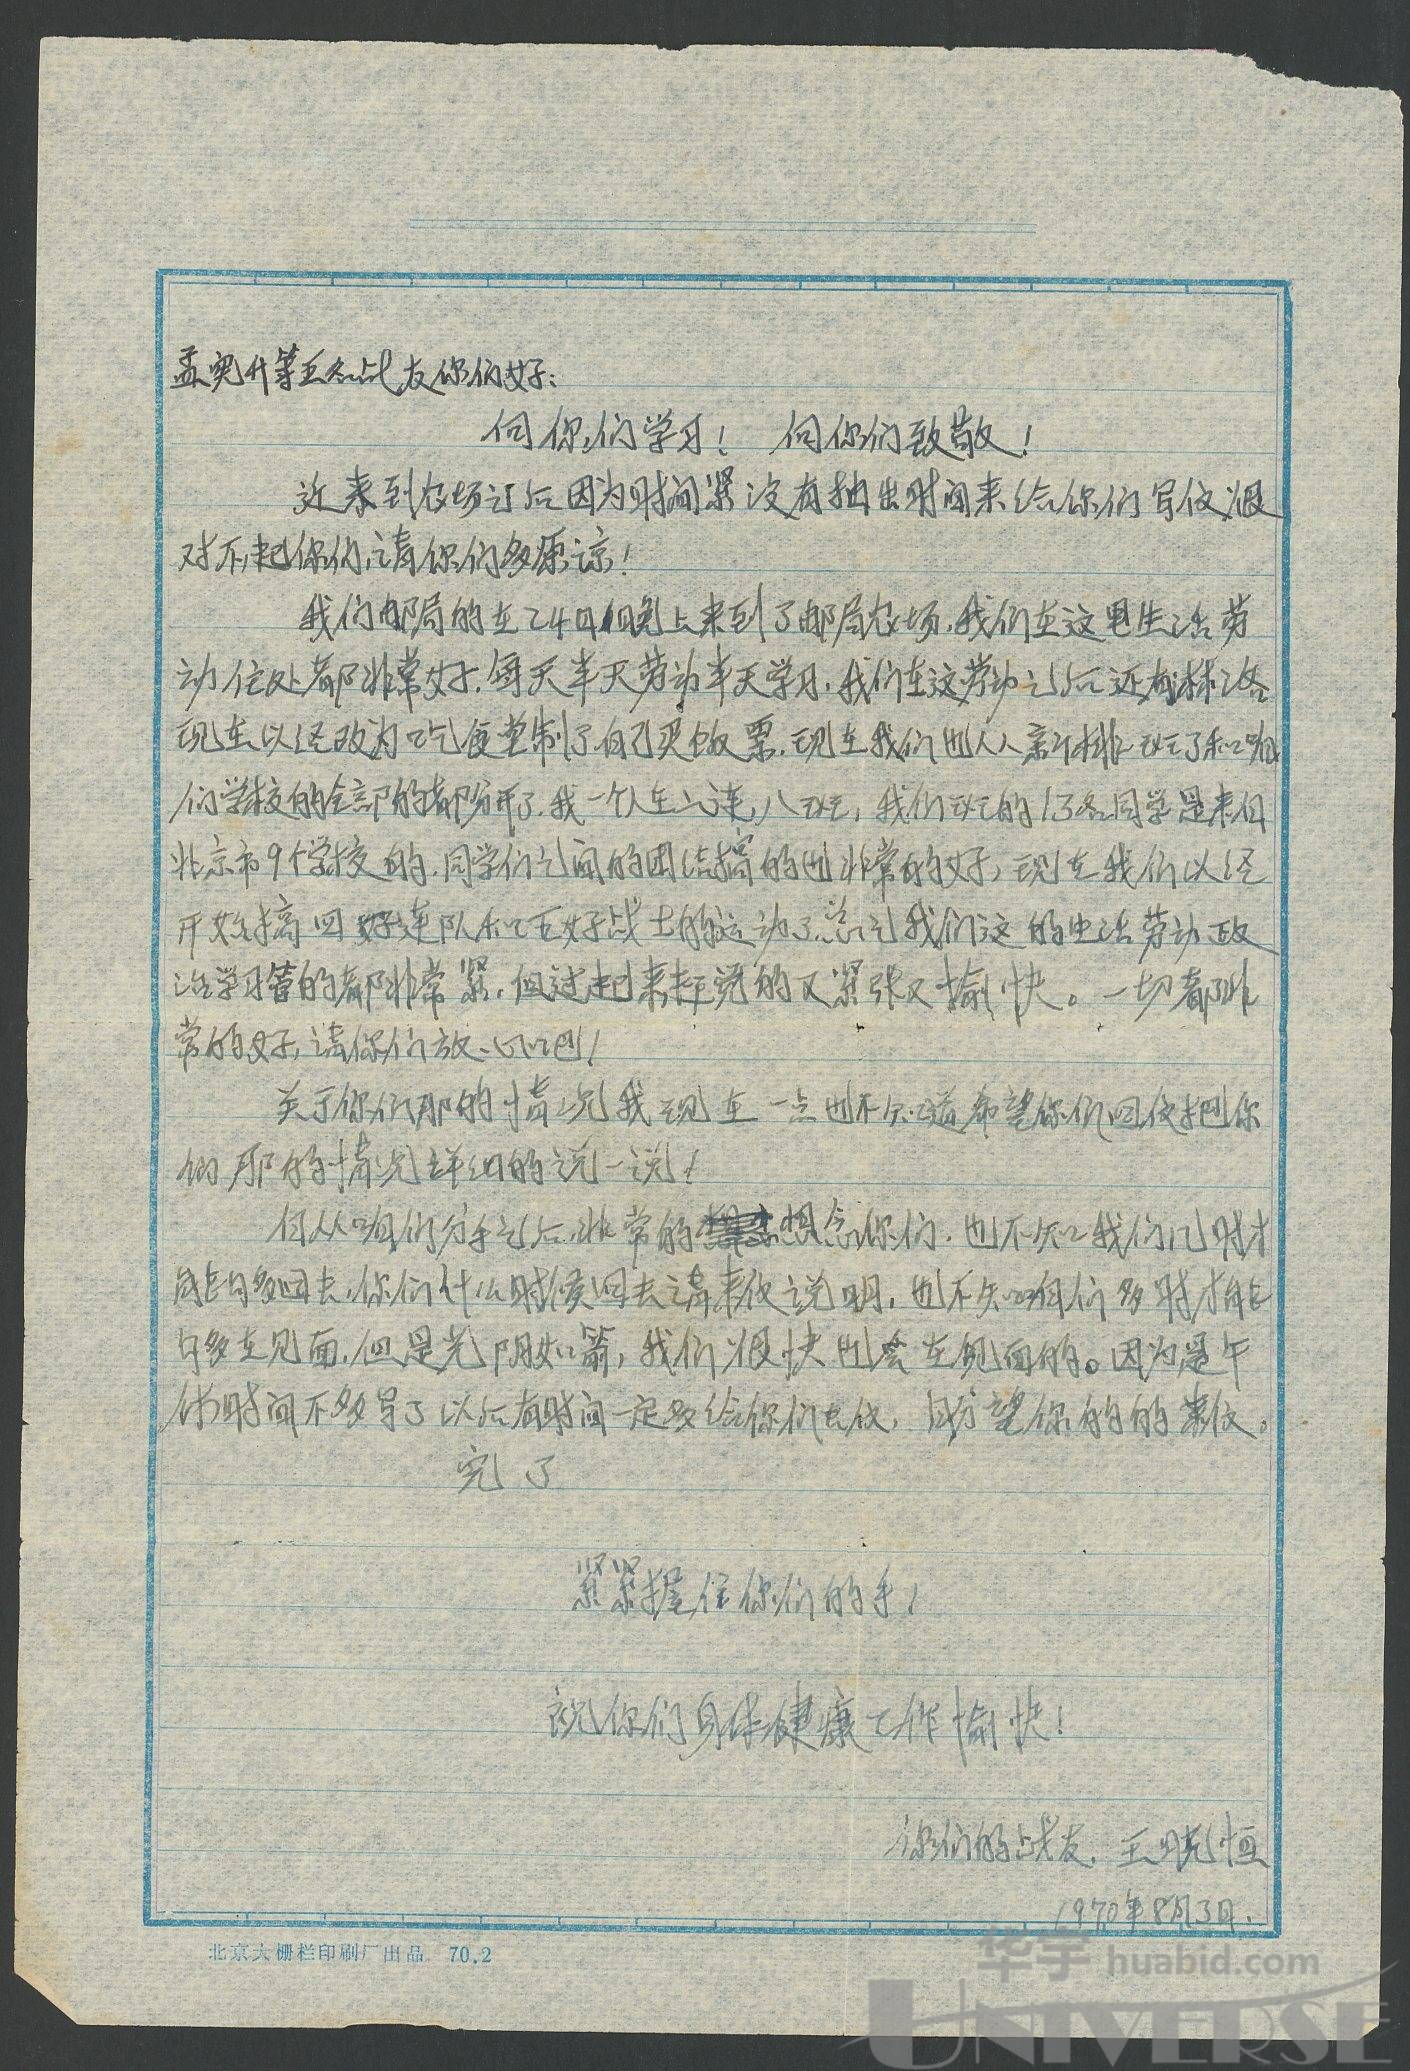 孟宪升等五名战友你们好：
向你们学习！ 向你们致敬！
近来到农场之后因为时间紧没有抽出时间来给你们写信很
对不起你们，请你们多原谅！
我们邮局的在24日晚上来到了邮局农场，我们在这里生活劳
动住处都非常好，每天半天劳动半天学习，我们在这劳动之后还有
现在以经改为吃食堂制了自己买饭票，现在我们也人人亲排班了和咱
们学校的全部的都分开了，我一个人在六连，八班，我们班的13名同学是来自
北京市9个学校的，同学们之间的团结搞的也非常的好，现在我们以经
开始搞四好连队和五好战士的运动了，总之我们这的生活劳动政
治学习等的都非常紧，但过起来说的又紧张又愉快。一切都非
常的好，请你们放心吧！
关于你们那的情况我现在一点也不知道希望你们回信把你
们那的情况详细的说一说！
自从咱们分手之后非常的想念你们，也不知我们几时才
能够回去，你们什么时侯回去请来信说明，也不知咱们多时才能
够在见面，但是光阴如箭，我们很快也会在见面的。因为是午
休时间不多写了以后有时间一定要给你们去信，盼望你的的来信。
完了
紧紧握住你们的手！
祝你们身体健康工作愉快！
你们的战友，王晓恒
1970年8月3日.
北京大栅栏印刷厂出品 70.2
华宇 huabid.com
UNIVERSE